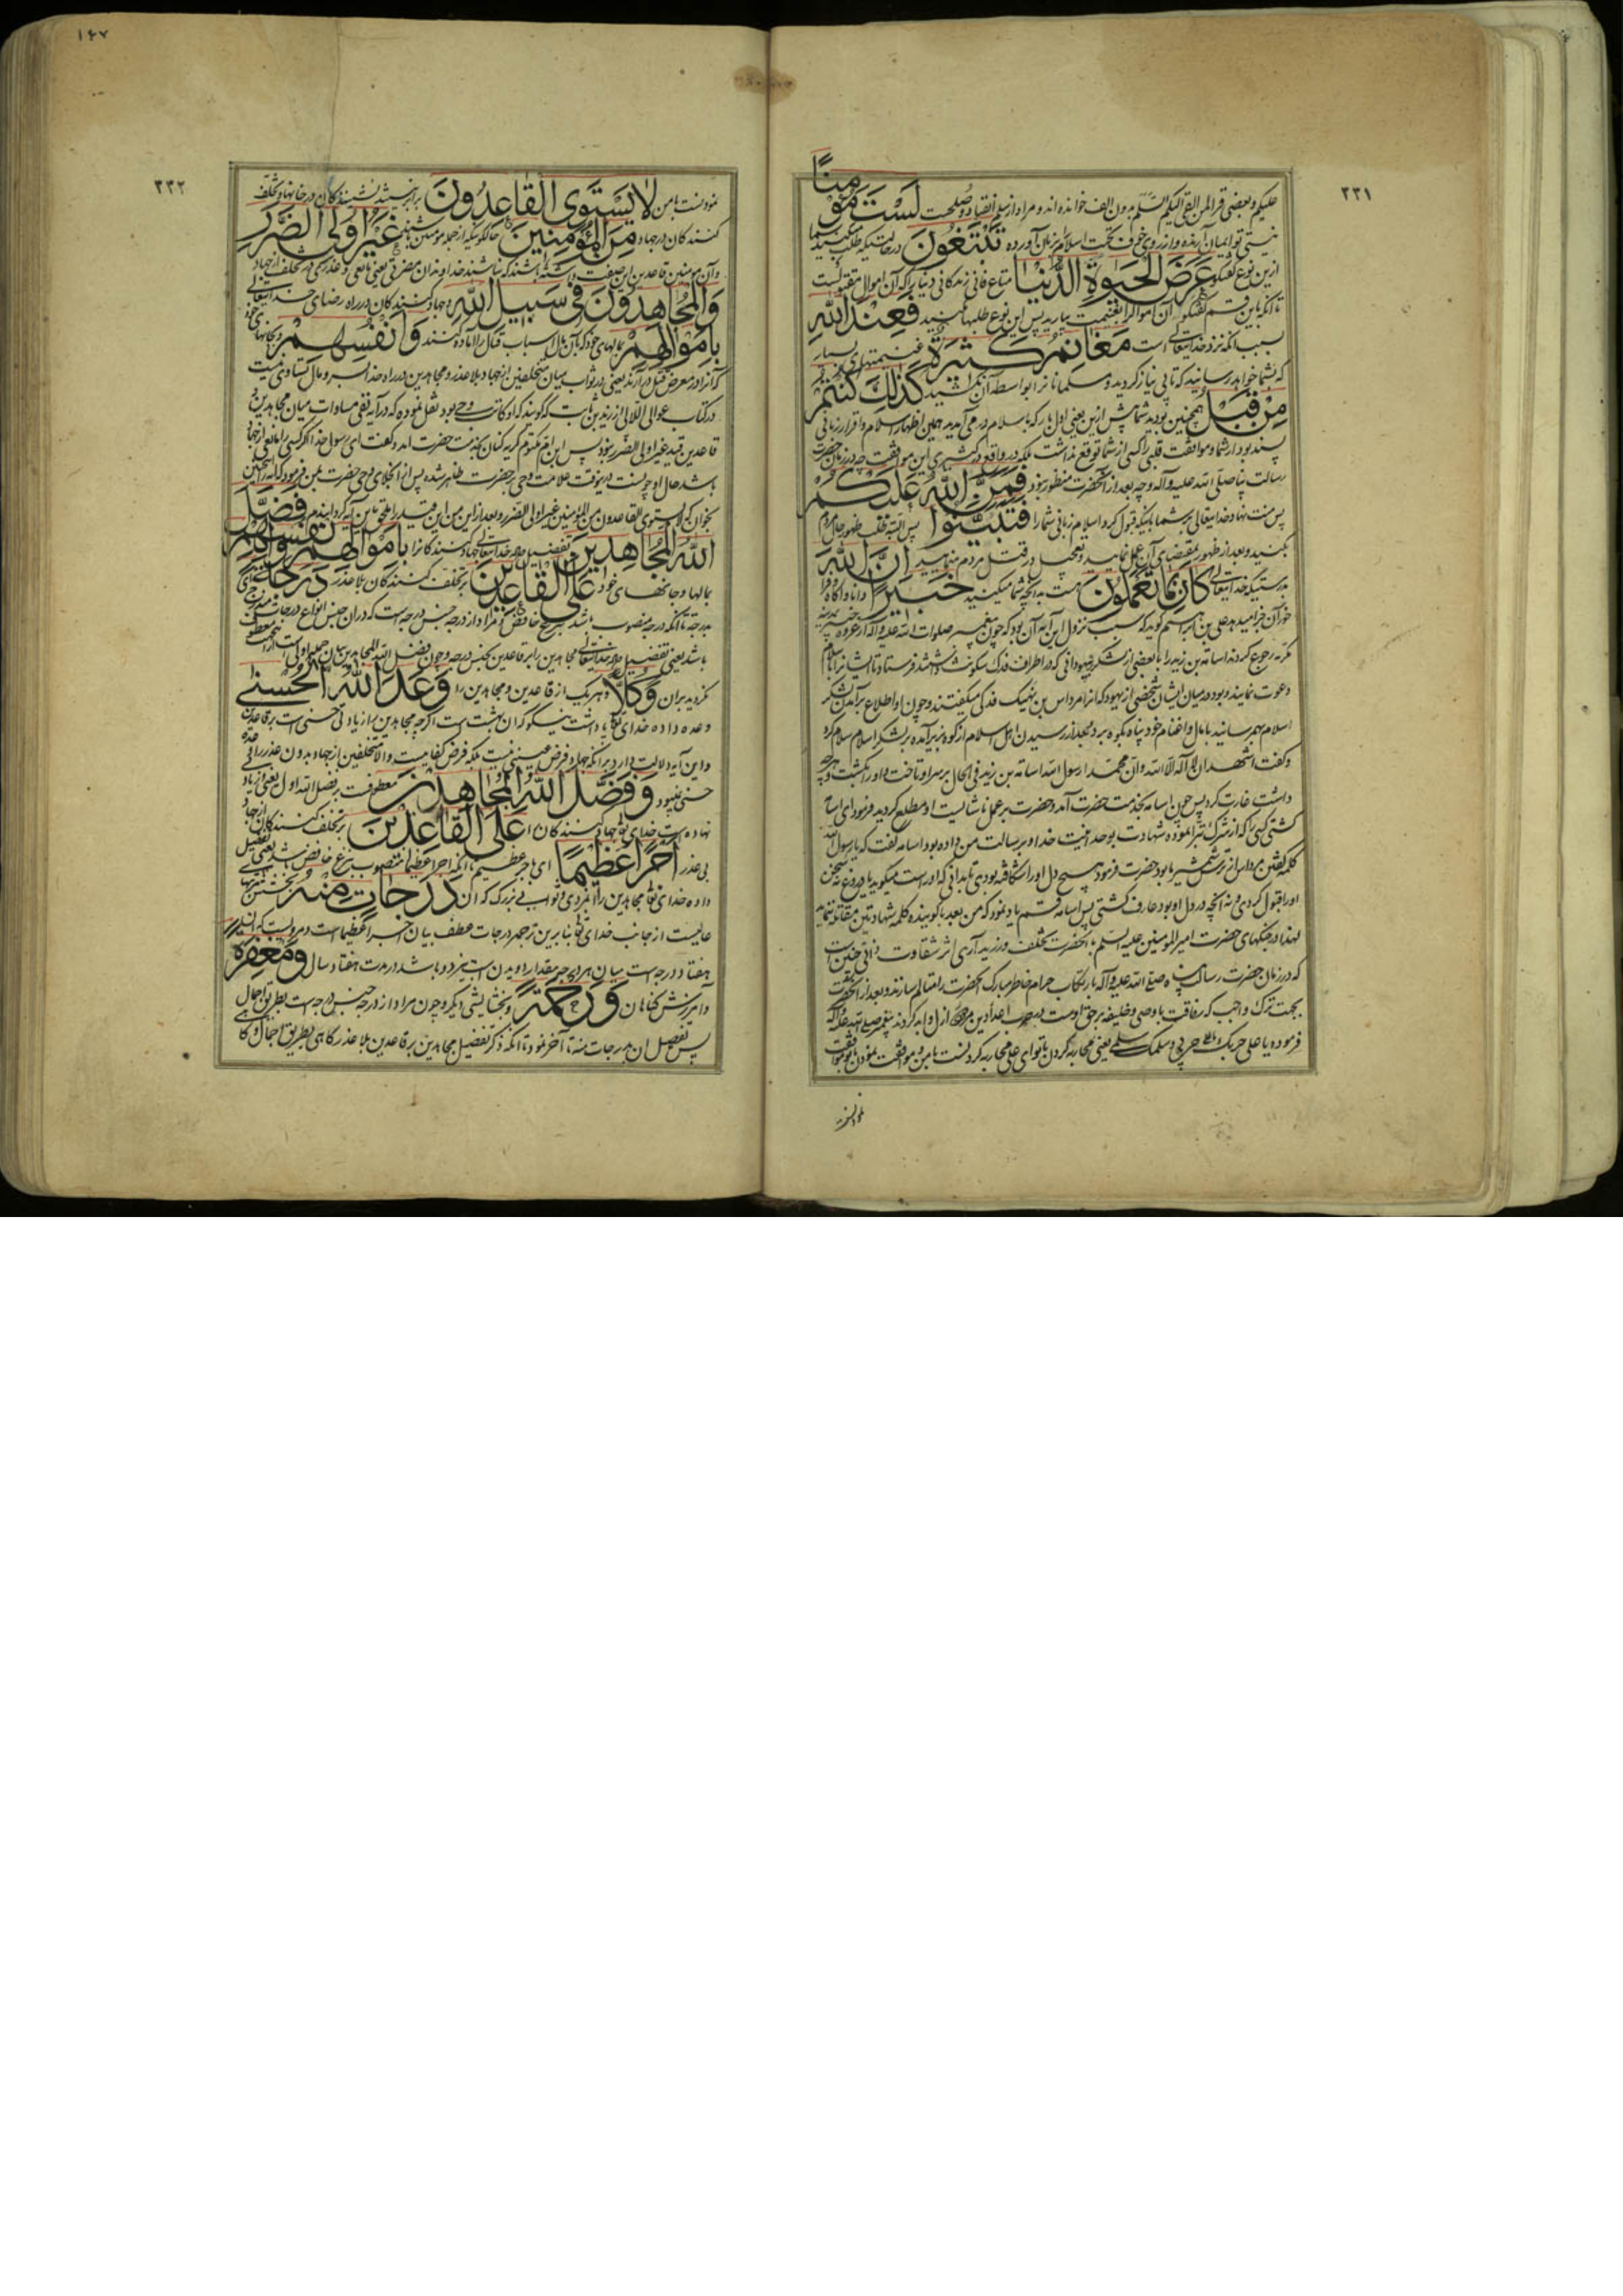 ۲۲۱
علیکم و بعضی قرا لمن القی الیکم السلم بدون الف خوانده اند و مراد از سلم انقیاد و صلحست لَسْتَ مُؤْمِنًا
نیستی تو ایمان آرنده و از روی خوف بجهت اسلام بر زبان آورده تَبْتَغُونَ در حالتیکه طلب میکنید شما
ازین نوع گفتگو عَرَضَ الْحَیٰوةِ الدُّنْیَا متاع فانی زندکانی دنیا را که آن اموال مقتولست
تا آنکه باین قسم گفتگو آن اموال را بغنیمت بیارید پس این نوع طلبها مکنید فَعِنْدَ اللّٰهِ
بسبب آنکه نزد خدایتعالی است مَغَانِمُ کَثِیرَةٌ غنیمتهای بسیار
که بشما خواهد رسانید که تا بی نیاز کردید و مسلمانان را بواسطه آن نکشید کَذٰلِکَ کُنْتُمْ
مِنْ قَبْلُ همچنین بودید شما پیش ازین یعنی اول بار که باسلام در می آمدید همین اظهار اسلام و اقرار زبانی
پسند بود از شما و موافقت قلبی را کسی از شما توقع نداشت بلکه در واقع در کشیری این موافقت چه در زمان حضرت
رسالت پناه صلی الله علیه و آله و چه بعد از آنحضرت منظور نبود فَمَنَّ اللّٰهُ عَلَیْکُمْ
پس منت نهاد خدایتعالی بر شما باینکه قبول کرد اسلام زبانی شما را فَتَبَیَّنُوا پس البته طلب ظهور حال مردم
بکنید و بعد از ظهور بمقتضای آن عمل نمایید و تعجیل در قتل مردم منمایید اِنَّ اللّٰهَ
بدرستیکه خدایتعالی کَانَ بِمَا تَعْمَلُونَ هست به آنچه شما میکنید خَبِیرًا دانا و آگاه
علی بن ابراهیم گوید که سبب نزول این آیه آن بود که چون پیغمبر صلوات الله علیه و آله از غزوه خیبر بمدینه
مکرمه رجوع کردند اسامة بن زید را با بعضی از لشکر بیهودانی که در اطراف فدک سکونت داشتند فرستاد تا ایشانرا باسلام
دعوت نمایند و بود در میان ایشان شخصی از یهود که او را مرداس بن نهیک فدکی میگفتند و چون او اطلاع بر آمدن لشکر
اسلام بهم رسانید با مال و اغنام خود پناه بکوه برد و بمجرد رسیدن اهل اسلام از کوه بزیر آمده بر لشکر اسلام سلام کرد
و گفت اشهد ان لا اله الا الله و ان محمدا رسول الله اسامة بن زید فی الحال بر سر او تاخت و او را بکشت و هر چه
داشت غارت کرد پس چون اسامه بخدمت حضرت آمد و حضرت بر عمل ناشایست او مطلع کردید فرمود ای اسامه
کشتی کسی را که از شرک تبرا نموده شهادت بوحدانیت خدا و برسالت من داده بود اسامه گفت که یا رسول الله
کلمه گفتن مرداس از ترس شمشیر ما بود حضرت فرمود هیچ دل او را شکافته بودی تا بدانی که او راست میگوید یا دروغ نه سخن
او را قبول کردی و نه آنچه در دل او بود عارف گشتی پس اسامه قسم یاد نمود که من بعد با گوینده کلمه شهادتین مقاتله ننماید
لهذا در جنگهای حضرت امیر المؤمنین علیه السلم از آنحضرت تخلف ورزید آری اثر شقاوت ذاتی چنین است
که در زمان حضرت رسالت پناه صلی الله علیه و آله بارتکاب حرام خاطر مبارک آنحضرت را متألم سازند و بعد از آنحضرت
بجهت ترک واجب که رفاقت با وصی و خلیفه بر حق اوست
فرموده یا علی حربک حربی و سلمک سلمی یعنی محاربه کردن با تو ای علی محاربه کردنست با من و موافقت نمودن با تو موافقت
۱۴۷
۲۲۲
نمودنست با من لَا یَسْتَوِی الْقَاعِدُونَ برابر نیستند نشینندکان در خانها و تخلف
کنندکان در جهاد مِنَ الْمُؤْمِنِینَ حالکونیکه از جمله مومنین باشند غَیْرُ اُولِی الضَّرَرِ
و آن مومنین قاعدین این صفت داشته باشند که نباشند خداوندان مضرتی یعنی مانعی و عذری در تخلف از جهاد
وَالْمُجَاهِدُونَ فِی سَبِیلِ اللّٰهِ و جهاد کنندکان در راه رضای خدایتعالی
بِاَمْوَالِهِمْ بمالهای خود که بآن مال اسباب قتال را آماده کنند وَاَنْفُسِهِمْ و بجانهای خود
که آنرا در معرض قتل در آرند یعنی در ثواب میان متخلفین از جهاد بلا عذر و مجاهدین در راه خدا بسر و مال تساوی نیست
در کتاب عوالی اللالی از زید بن ثابت که گویند که او کاتب وحی بود نقل نموده که در آیه نفی مساوات میان مجاهدین و
قاعدین قید غیر اولی الضرر نبود پس ابن ام مکتوم گریه کنان بخدمت حضرت آمد و گفت ای رسول خدا اگر کسی را مانعی از جهاد
باشد حال او چونست درینوقت علامت وحی بر حضرت ظاهر شده پس از انجلای وحی حضرت بمن فرمود که آیه را چنین
بخوان که لا یستوی القاعدون من المؤمنین غیر اولی الضرر و بعد ازین من این قید را ملحق باین آیه گردانیدم فَضَّلَ
اللّٰهُ الْمُجَاهِدِینَ تفضیل داده خدایتعالی جهاد کنندکان را بِاَمْوَالِهِمْ وَاَنْفُسِهِمْ
بمالها و جانهای خود عَلَی الْقَاعِدِینَ بر تخلف کنندکان بلا عذر دَرَجَةً ای
بدرجة تا آنکه درجه منصوب باشد بنزع خافض و مراد از درجه جنس درجه است که در آن جنس انواع درجات مندرج
باشد یعنی تفضیل داده خدایتعالی مجاهدین را بر قاعدین بجنس درجه و چون فضل الله المجاهدین بیان جمله اولی است
نکردید بر آن وَکُلًّا و هر یک از قاعدین و مجاهدین را وَعَدَ اللّٰهُ الْحُسْنٰی
وعده داده خدای تعالی پاداشت نیکو که آن بهشت است اگرچه مجاهدین را زیادتی حسنی است بر قاعدین
و این آیه دلالت دارد بر آنکه جهاد فرض عینی نیست بلکه فرض کفاییست و الا متخلفین از جهاد بدون عذر را وعده
حسنی نمیبود وَفَضَّلَ اللّٰهُ الْمُجَاهِدِینَ معطوفست بر فضل الله اول یعنی زیاد
نهاده است خدای تعالی جهاد کنندکان را عَلَی الْقَاعِدِینَ بر تخلف کنندکان از جهاد
بی عذر اَجْرًا عَظِیمًا ای باجر عظیم تا آنکه اجرا عظیما منصوب بنزع خافض باشد یعنی تفضیل
داده خدای تعالی مجاهدین را بمزدی و ثوابی بزرک که آن دَرَجَاتٍ مِنْهُ
عالیست از جانب خدای تعالی بنا برین ترجمه درجات عطف بیان اجرا عظیما است و مرویست که آن
هفتاد درجه است میان هر دو درجه مقدار دویدن اسب تیزرو باشد در مدت هفتاد سال وَمَغْفِرَةً
و آمرزش کناهان وَرَحْمَةً و بخشایشی دیگر و چون مراد از درجه جنس درجه است بطریق اجمال
پس تفصیل آن بدرجات منه تا آخر نمود تا آنکه ذکر تفضیل مجاهدین بر قاعدین بلا عذر کاهی بطریق اجمال و کاهی